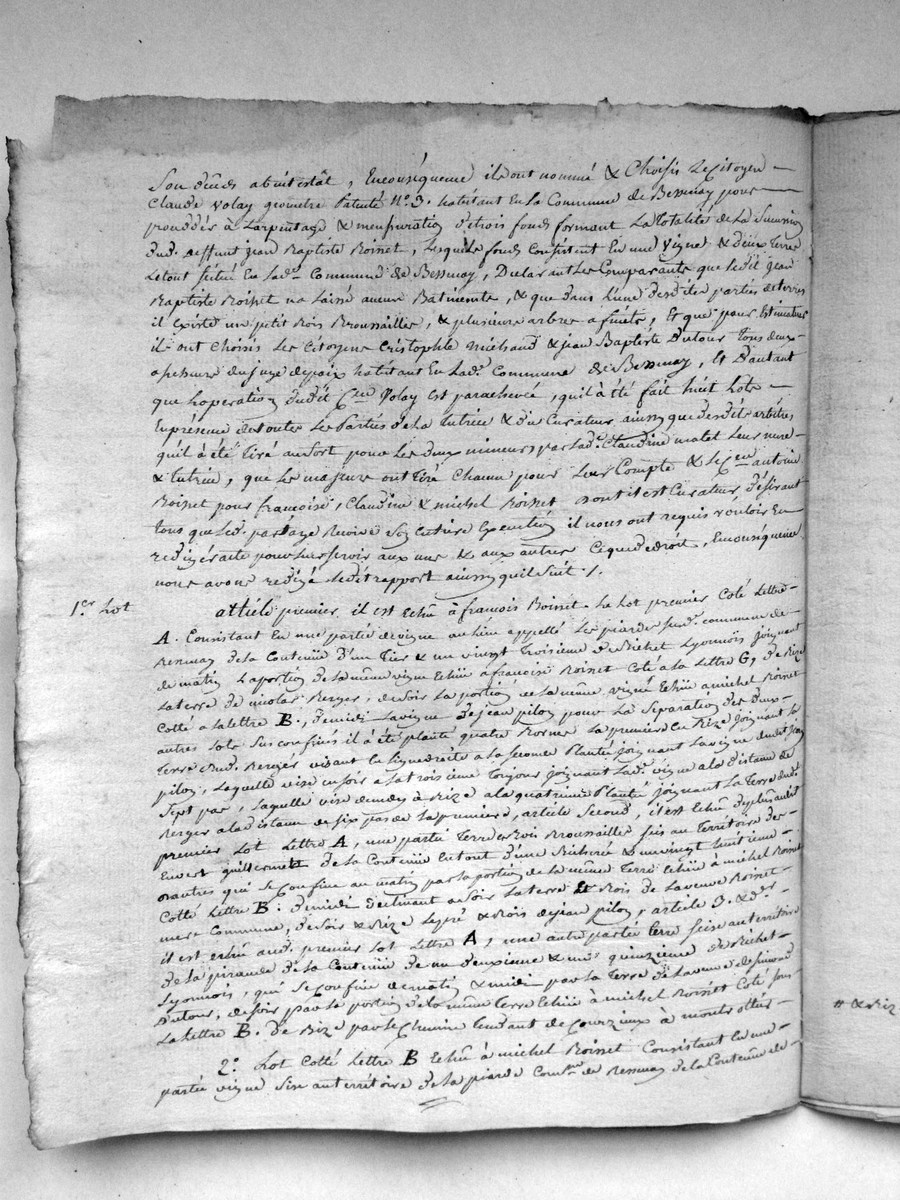 Son décès abintestât, Enconséquence ils ont nommé & Choisis Le Citoyen
Claude Volay geometre Patenté N.º 3. habitant En la Commune de Bessenay pour
proceder à Larpentage & mensuration de trois fonds formant La Totalité de La Succession
dud. deffunt jean Baptiste Boisset, Lesquels fonds Consistent En une Vigne & deux Terres
Le tout scitué En lad.e Commune de Bessenay, Declarant Les Comparants que Ledit jean
Baptiste Boisset na laissé aucun Batiments, & que dans L'une desdites parties de terres
il existe un petit Bois Broussailles, & plusieurs arbres a fruits, Et que pour Estimateurs
ils ont Choisis Les Citoyens Cristophle michaud & jean Baptiste Dutour Tous deux
assesseurs du juge de paix habitant En Lad.e Commune de Bessenay, Et D'autant
que Loperation dudit C.en Volay est parachevée, quil à été fait huit Lots
En présence de toutes Les Parties de La Tutrice & du Curateur ainsy que desdits artistes
quil à été Tiré au sort pour Les deux mineurs par Lad.e Claudine matel Leur mere
& tutrice, que Les majeurs ont Tiré Chacun pour Leur Compte & Le C.en antoine
Boisset pour françoise, Claudine & michel Boisset dont il est Curateur Désirant
Tous que Led. partage Recoive son Entiere Execution il nous ont requis vouloir En
redigér acte pour Leur servir aux uns & aux autres Ce que de droit, Enconséquence
nous avons redigé Ledit rapport ainsy quil suit /.
1.er Lot
article premier il est Echû à françois Boisset Le Lot premier Coté Lettre
A. Consistant En une partie de vigne au Lieu appellé Les piardes sud.e commune de
Bessenay de la Contenüe d'un Tier & un vingt Troisieme de Bichet Lyonnois joignant
de matin La portion de la même vigne Echüe a françoise Boisset Coté a la Lettre G, de Bize
La terre de nicolas Berger, de soir La portion de La même vigne Echüe a michel Boisset
Cotté a La Lettre B., de midi La vigne de jean pilon pour La Separation des deux
autres Lots Sus confinés il à été planté quatre Bornes La premiere En Bize joignant La
Terre dud. Berger visant En Ligne droite a la seconde Plantée joignant La vigne dudit jean
pilon, Laquelle vise En soir a La troisieme Toujours joignant Lad.e vigne a la Distance de
Sept pas, Laquelle vise de midy à Bize a la quatrieme Plantée joignant La Terre dud.
Berger a la distance de six pas de La premiere, article Second, il est Echû De plus audit
premier Lot Lettre A, une partie Terre & Bois Broussaille sis au Territoire de
de La Contenüe En tout d'une Bicherée & un vingt huitieme
qui se Confine au matin par La portion de la même Terre Echüe à michel Boisset
Cotté Lettre B. de midi declinant a soir La terre & Bois de La veuve Boisset
mere Commune, de soir & Bize Le pré & Bois de jean pilon, article 3. & d.er
il est echû aud. premier Lot Lettre A, une autre partie Terre scise au territoire
de La piraude de la Contenüe de un deuxieme & un quinzieme de Bichet
Lyonnois, qui se Confine de matin & midi par la Terre de La veuve de simond
Dutour, de soir par La portion de la même Terre Echüe à michel Boisset Coté sous
La Lettre B. de Bize par le Chemin Tendant de Courzieux à
2.º Lot Cotté Lettre B Echû à michel Boisset Consistant En une
partie vigne Sise au territoire de La piarde Com.ne de Bessenay de la Contenüe de
// & Bize